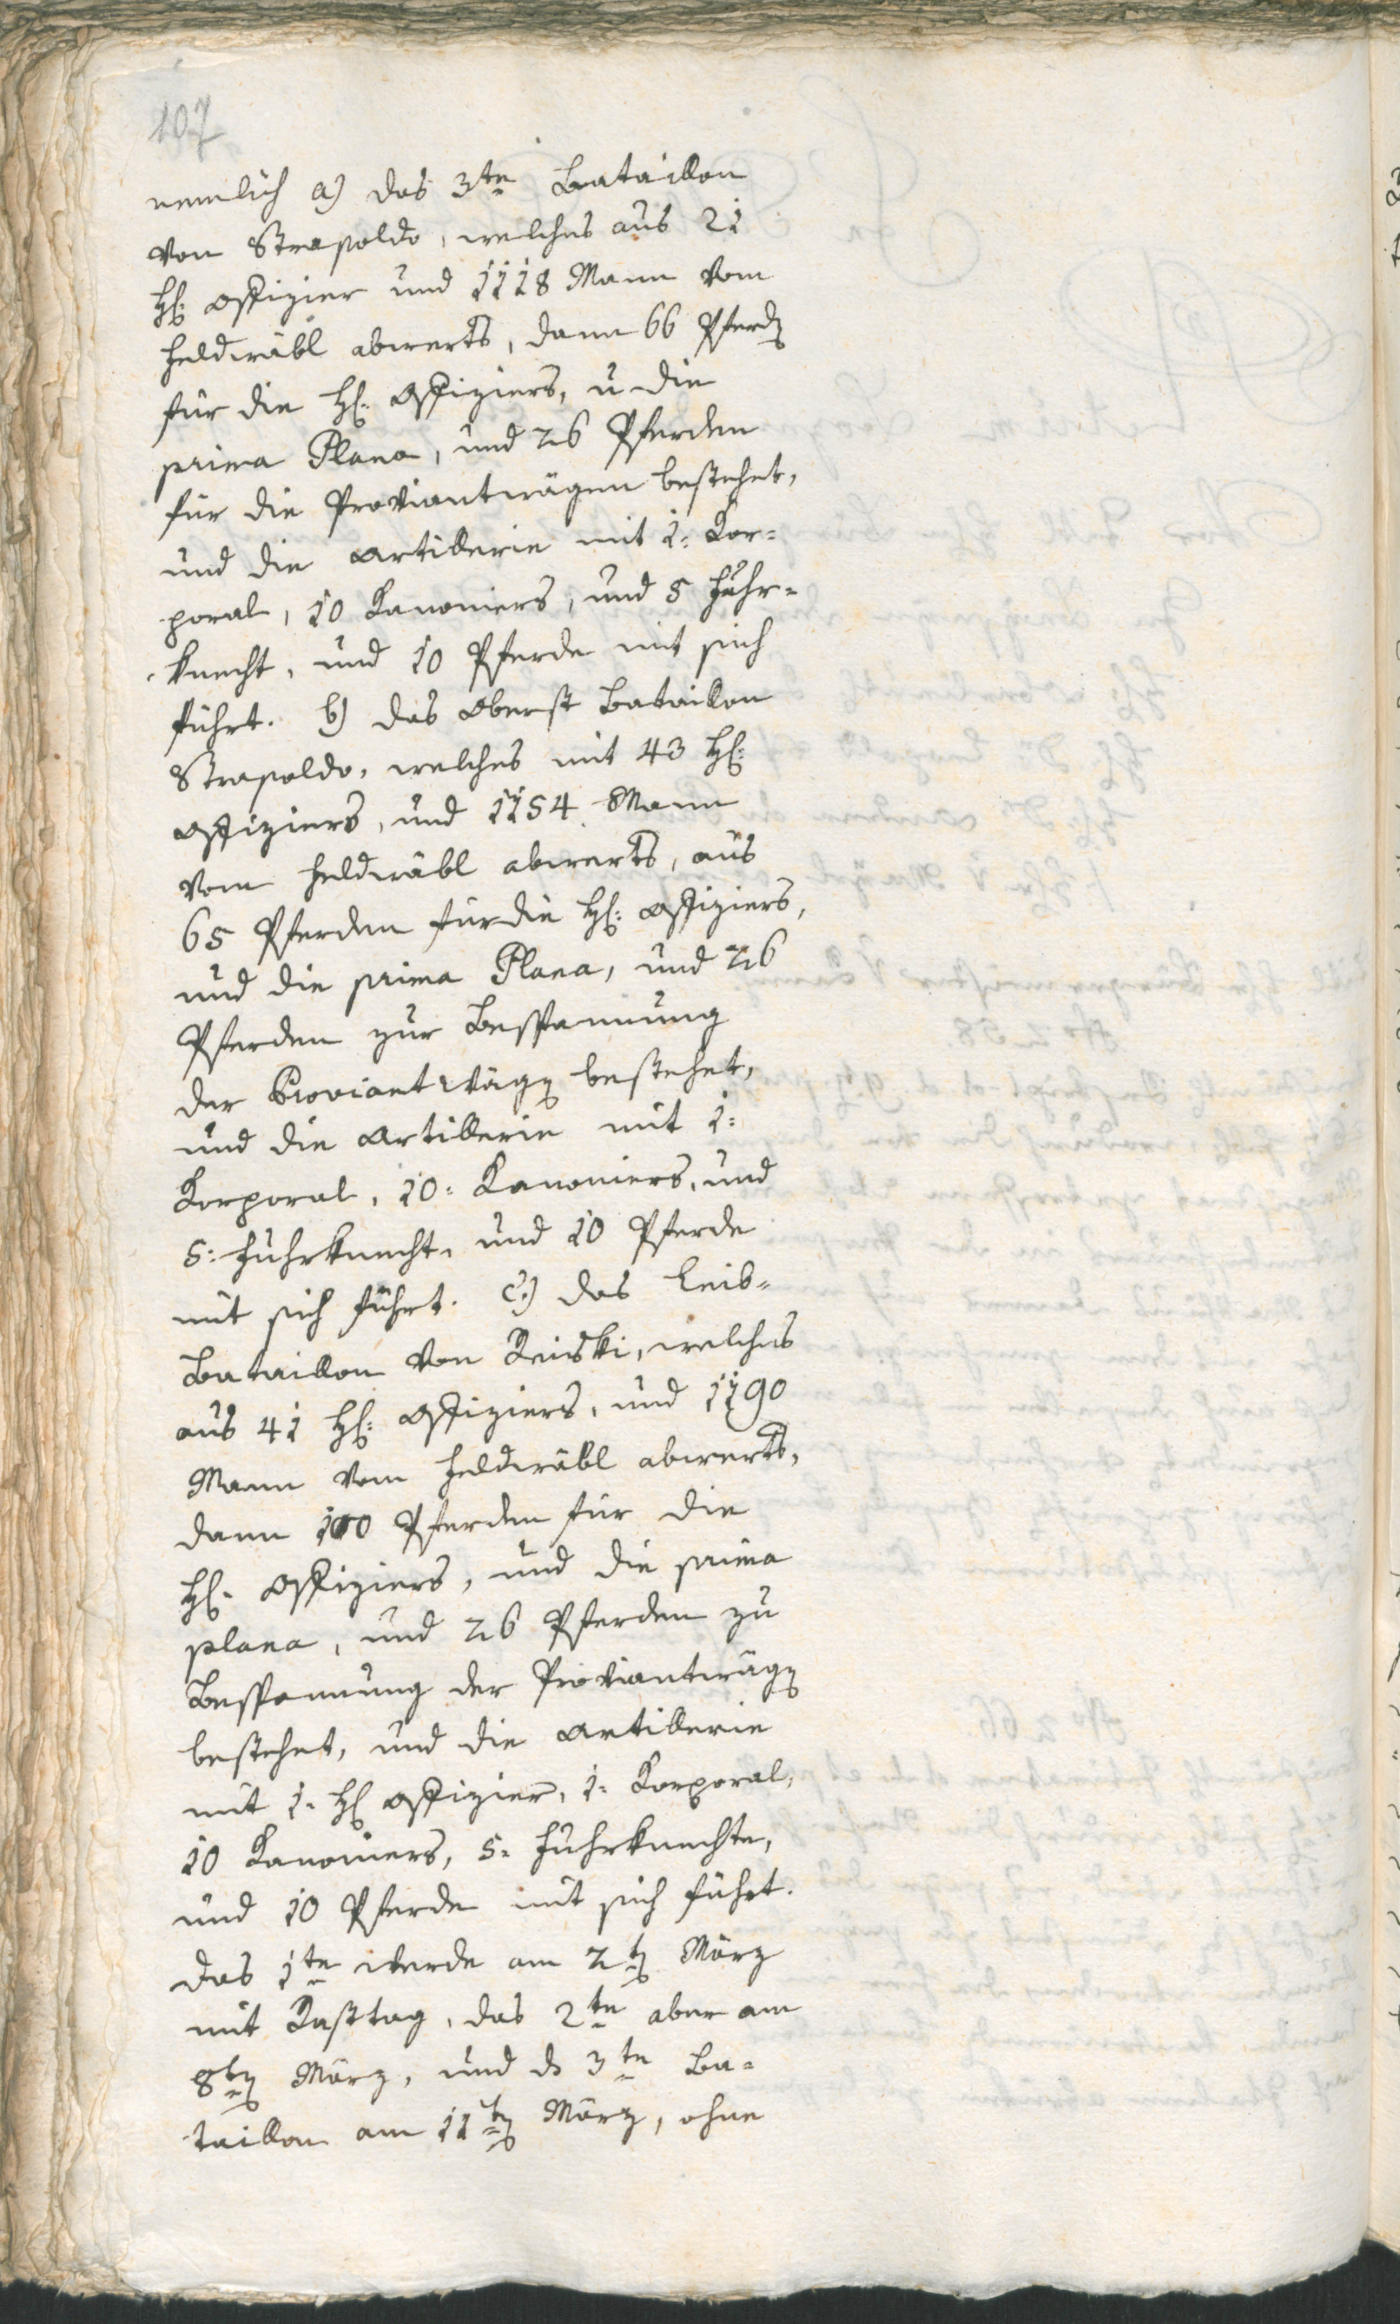 107
nemlich a) das 3te Bataillon
von Strasoldo, welches aus 21
H: Offizier und 1118 Mann vom
Feldwäbl abwerts, dann 66 Pferd
für die H: Offiziers, u die
prima Plana, und 26 Pferden
für die Proviantwägen bestehet,
und die Artillerie mit 1: Kor=
poral, 10 Kanoniers, und 5 Fuhr=
knecht, und 10 Pferde mit sich
führt. b) das Oberst Bataillon
Strasoldo, welches mit 43 H:
Offiziers, und 1154 Mann
vom Feldwäbl abwerts, aus
65 Pferden für die H: Offiziers,
und die prima Plana, und 26
Pferden zur Bespannung
der Proviantwäg bestehet,
und die Artillerie mit 1:
Korporal, 10: Kanoniers, und
5: Fuhrknecht, und 10 Pferde
mit sich führt. c.) das Leib=
Bataillon von Reiski, welches
aus 41 H: Offiziers, und 1190
Mann vom Feldwäbl abwerts,
dann 100 Pferden für die
H: Offiziers, und die prima
plana, und 26 Pferden zu
Bespannung der Proviantwäg
bestehet, und die Artillerie
mit 1: H Offizier, 1: Korporal,
10 Kanoniers, 5: Fuhrknechte,
und 10 Pferde mit sich führt.
das 1te werde am 2t März
mit Rasttag, das 2te aber am
8t März, und ds 3te Ba=
taillon am 11t März, ohne